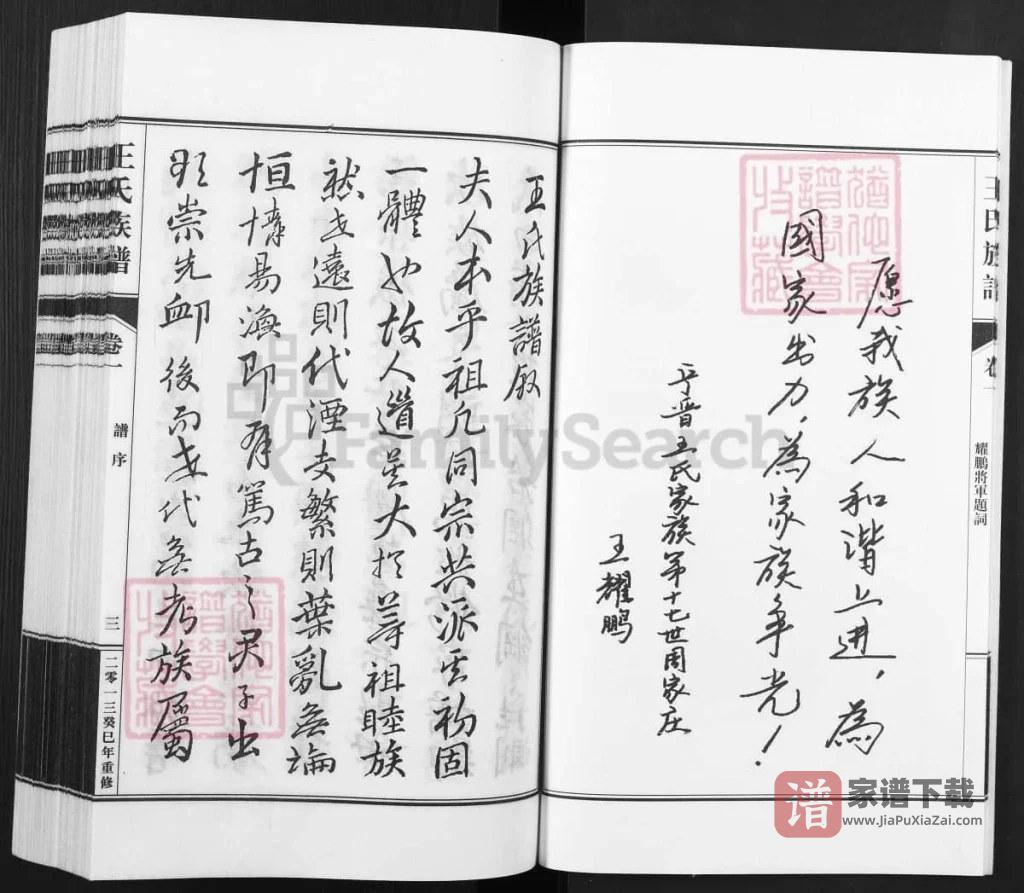 王氏族譜
卷一
耀鵬將軍題詞
愿我族人和谐上进，為
國家出力，為家族争光！
晋王氏家族第十七世周家庄
王耀鹏
猶他家
譜學會
收藏
王氏族譜叙
夫人本乎祖凡同宗共派其初固
一體也故人道莫大於尊祖睦族
然世遠則代湮支繁則葉亂無論
恒情易渙即有篤古之君子出
欲崇先卹後而世代無考族屬
猶他家
譜學會
收藏
王氏族譜
卷一
譜序
三
二零一三癸巳年重修
FamilySearch
谱
家谱下载
www.JiaPuXiaZai.com